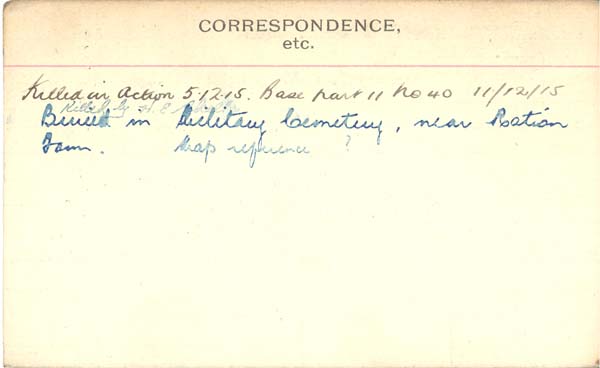 CORRESPONDENCE,
etc.
Killed in Action 5.12.15. Base part 11 No 40 11/12/15
Killed by H.E. Shell
Buried in Military Cemetery, near Ration
Farm. Map reference ?